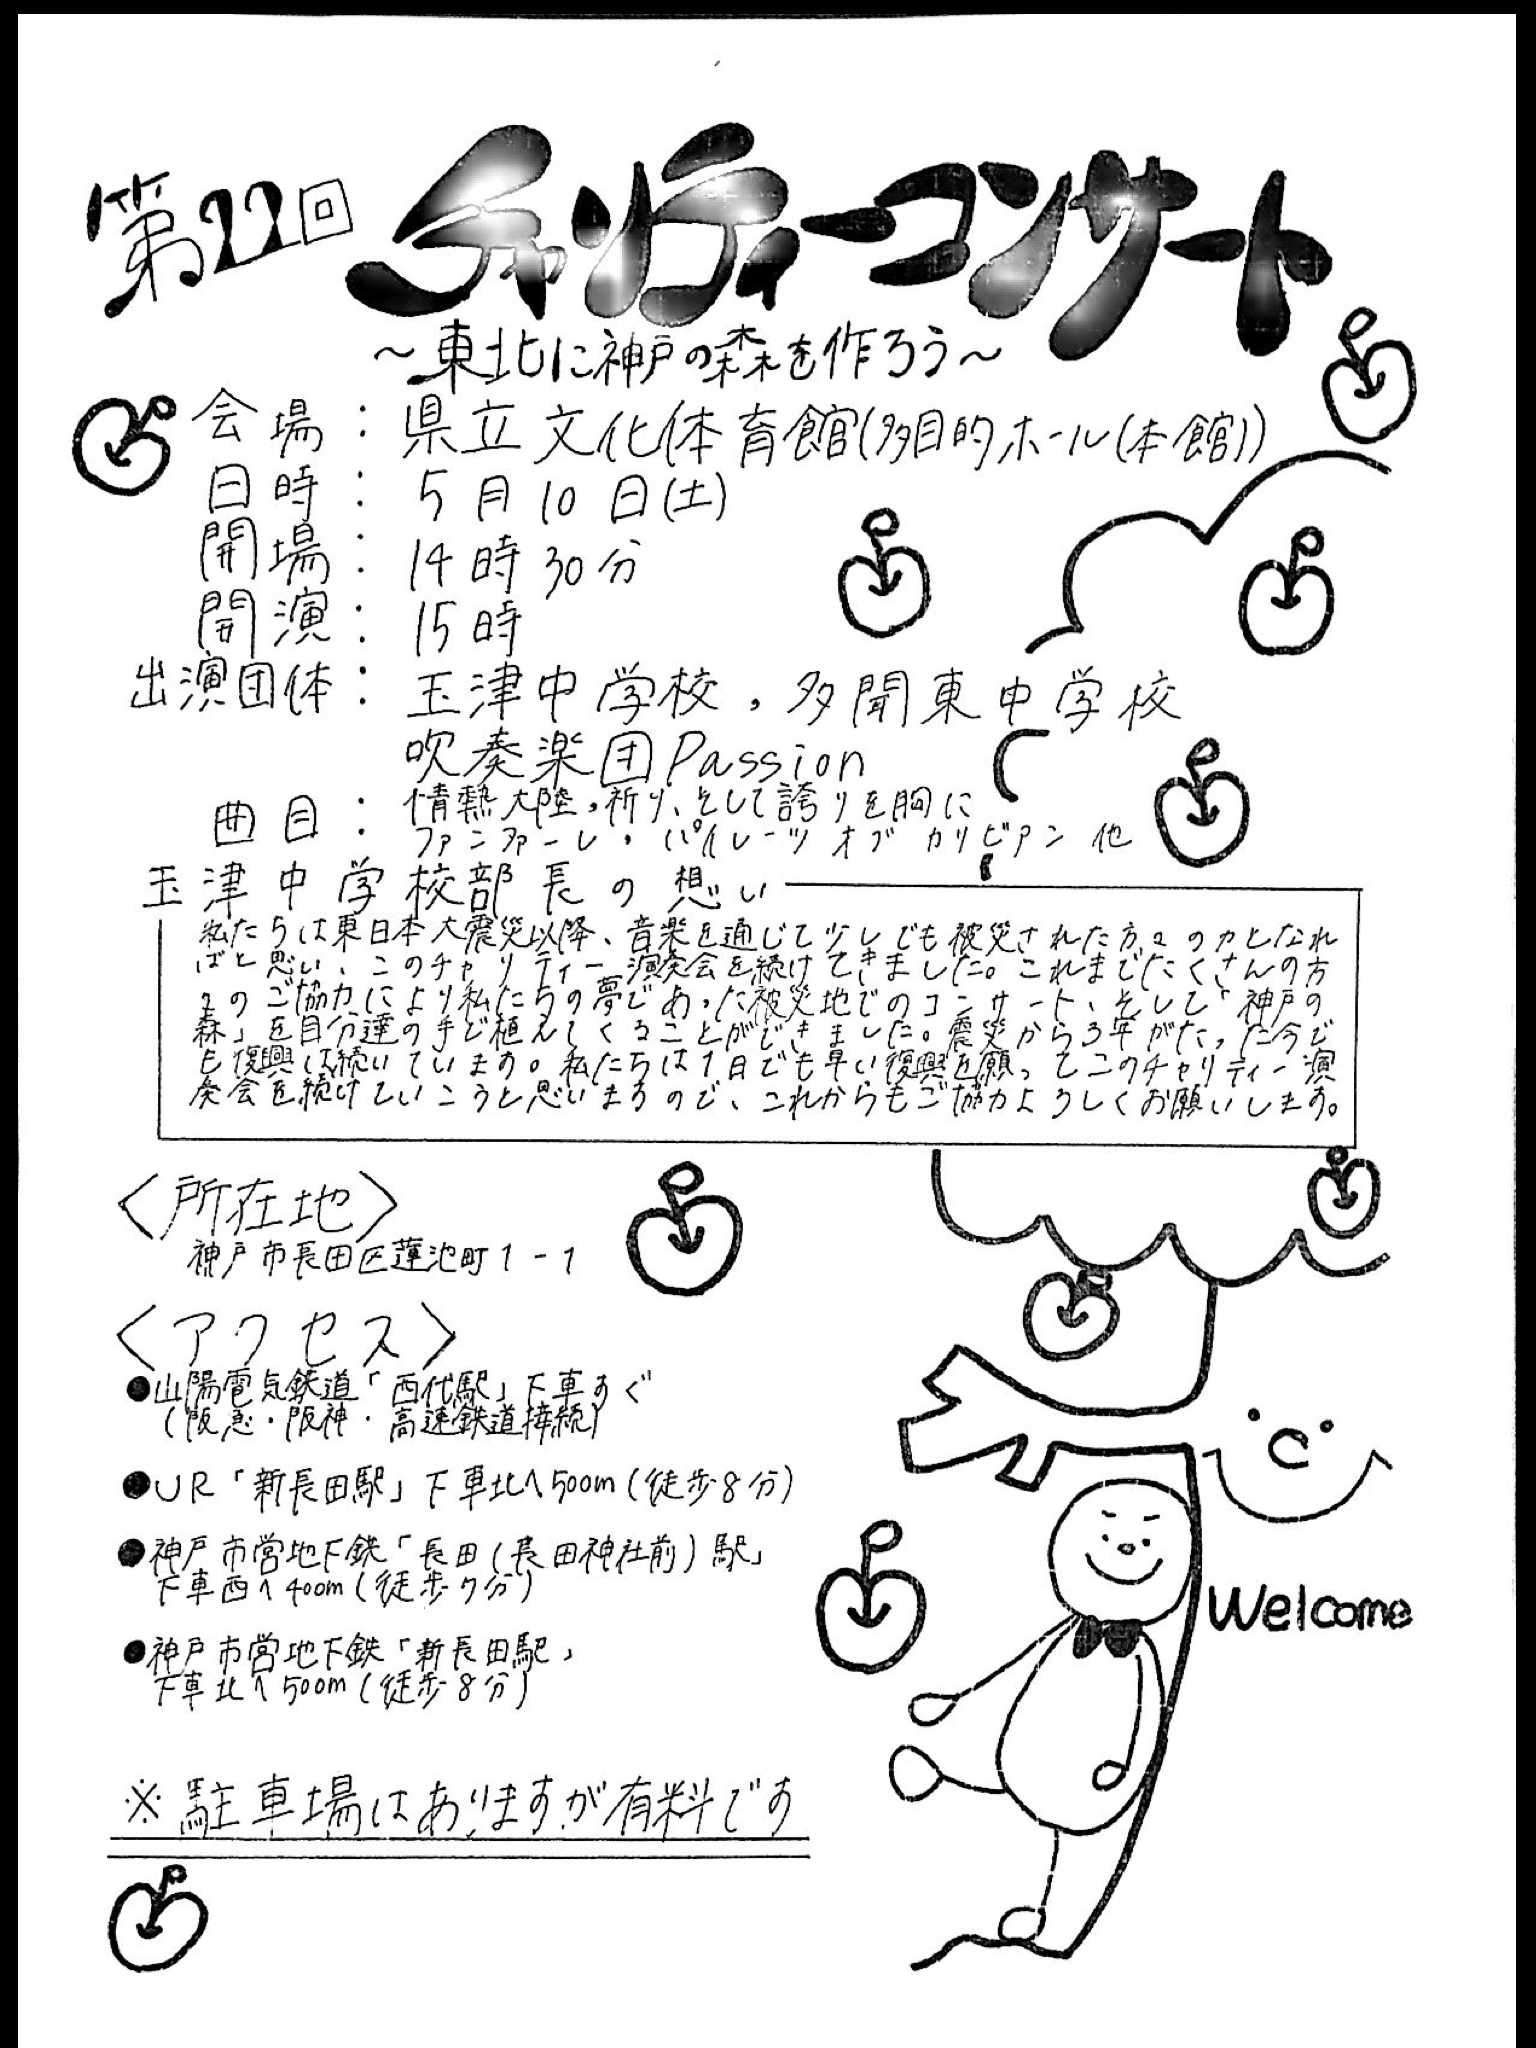 第22回 チャリティーコンサート
～東北に神戸の森を作ろう～
会場：県立文化体育館(多目的ホール(本館))
日時：5月10日(土)
開場：14時30分
開演：15時
出演団体：玉津中学校，多聞東中学校
吹奏楽団Passion
曲目：情熱大陸，祈り、そして誇りを胸に
ファンファーレ，パイレーツ オブ カリビアン 他
玉津中学校部長の想い
私たちは東日本大震災以降、音楽を通じて少しでも被災された方々の力となれ
ばと思い、このチャリティー演奏会を続けてきました。これまでたくさんの方
々のご協力により私たちの夢であった被災地でのコンサート、そして「神戸の
森」を自分達の手で植えてくることができました。震災から3年がたった今で
も復興は続いています。私たちは1日でも早い復興を願ってこのチャリティー演
奏会を続けていこうと思いまするので、これからもご協力よろしくお願いします。
〈所在地〉
神戸市長田区蓮池町1-1
〈アクセス〉
●山陽電気鉄道「西代駅」下車すぐ
(阪急・阪神・高速鉄道接続)
●JR「新長田駅」下車北へ500m(徒歩8分)
●神戸市営地下鉄「長田(長田神社前)駅」
下車西へ400m(徒歩7分)
●神戸市営地下鉄「新長田駅」
下車北へ500m(徒歩8分)
Welcome
※駐車場はありますが有料です